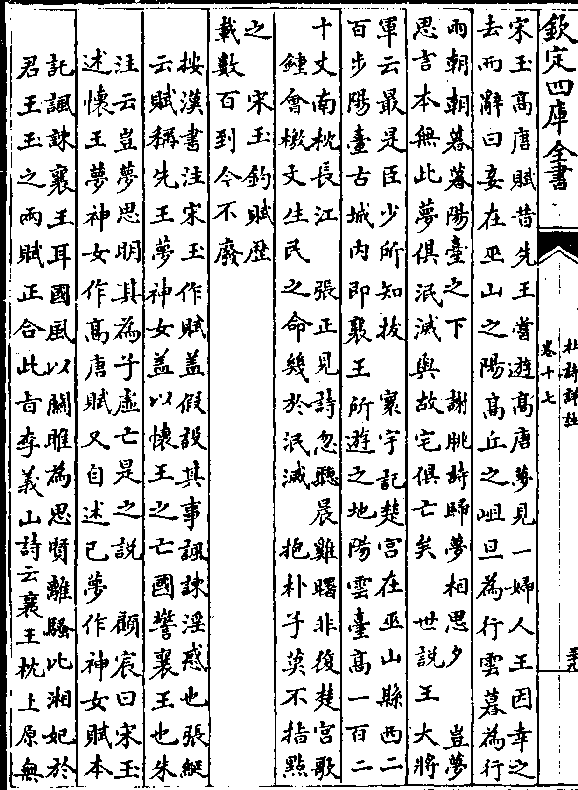 欽定四庫全書
杜詩詳註
卷十七
宋玉高唐賦昔先王嘗遊高唐夢見一婦人王因幸之
去而辭曰妾在巫山之陽高丘之岨旦為行雲暮為行
雨朝朝暮暮陽臺之下　謝朓詩歸夢相思夕　豈夢
思言本無此夢俱泯滅與故宅俱亡矣　世說王大將
軍云最是臣少所知拔　寰宇記楚宮在巫山縣西二
百步陽臺古城内即襄王所遊之地陽雲臺高一百二
十丈南枕長江　張正見詩忽聽晨雞曙非復楚宮歌
鍾會檄文生民之命幾於泯滅　抱朴子莫不指點
之　宋玉釣賦歴
載數百到今不廢
按漢書注宋玉作賦蓋假設其事諷諫淫惑也張綖
云賦稱先王夢神女蓋以懷王之亡國警襄王也朱
注云豈夢思明其為子虛亡是之說　顧宸曰宋玉
述懷王夢神女作高唐賦又自述已夢作神女賦本
託諷諫襄王耳國風以關雎為思賢離騷比湘妃於
君王玉之兩賦正合此旨李義山詩云襄王枕上原無